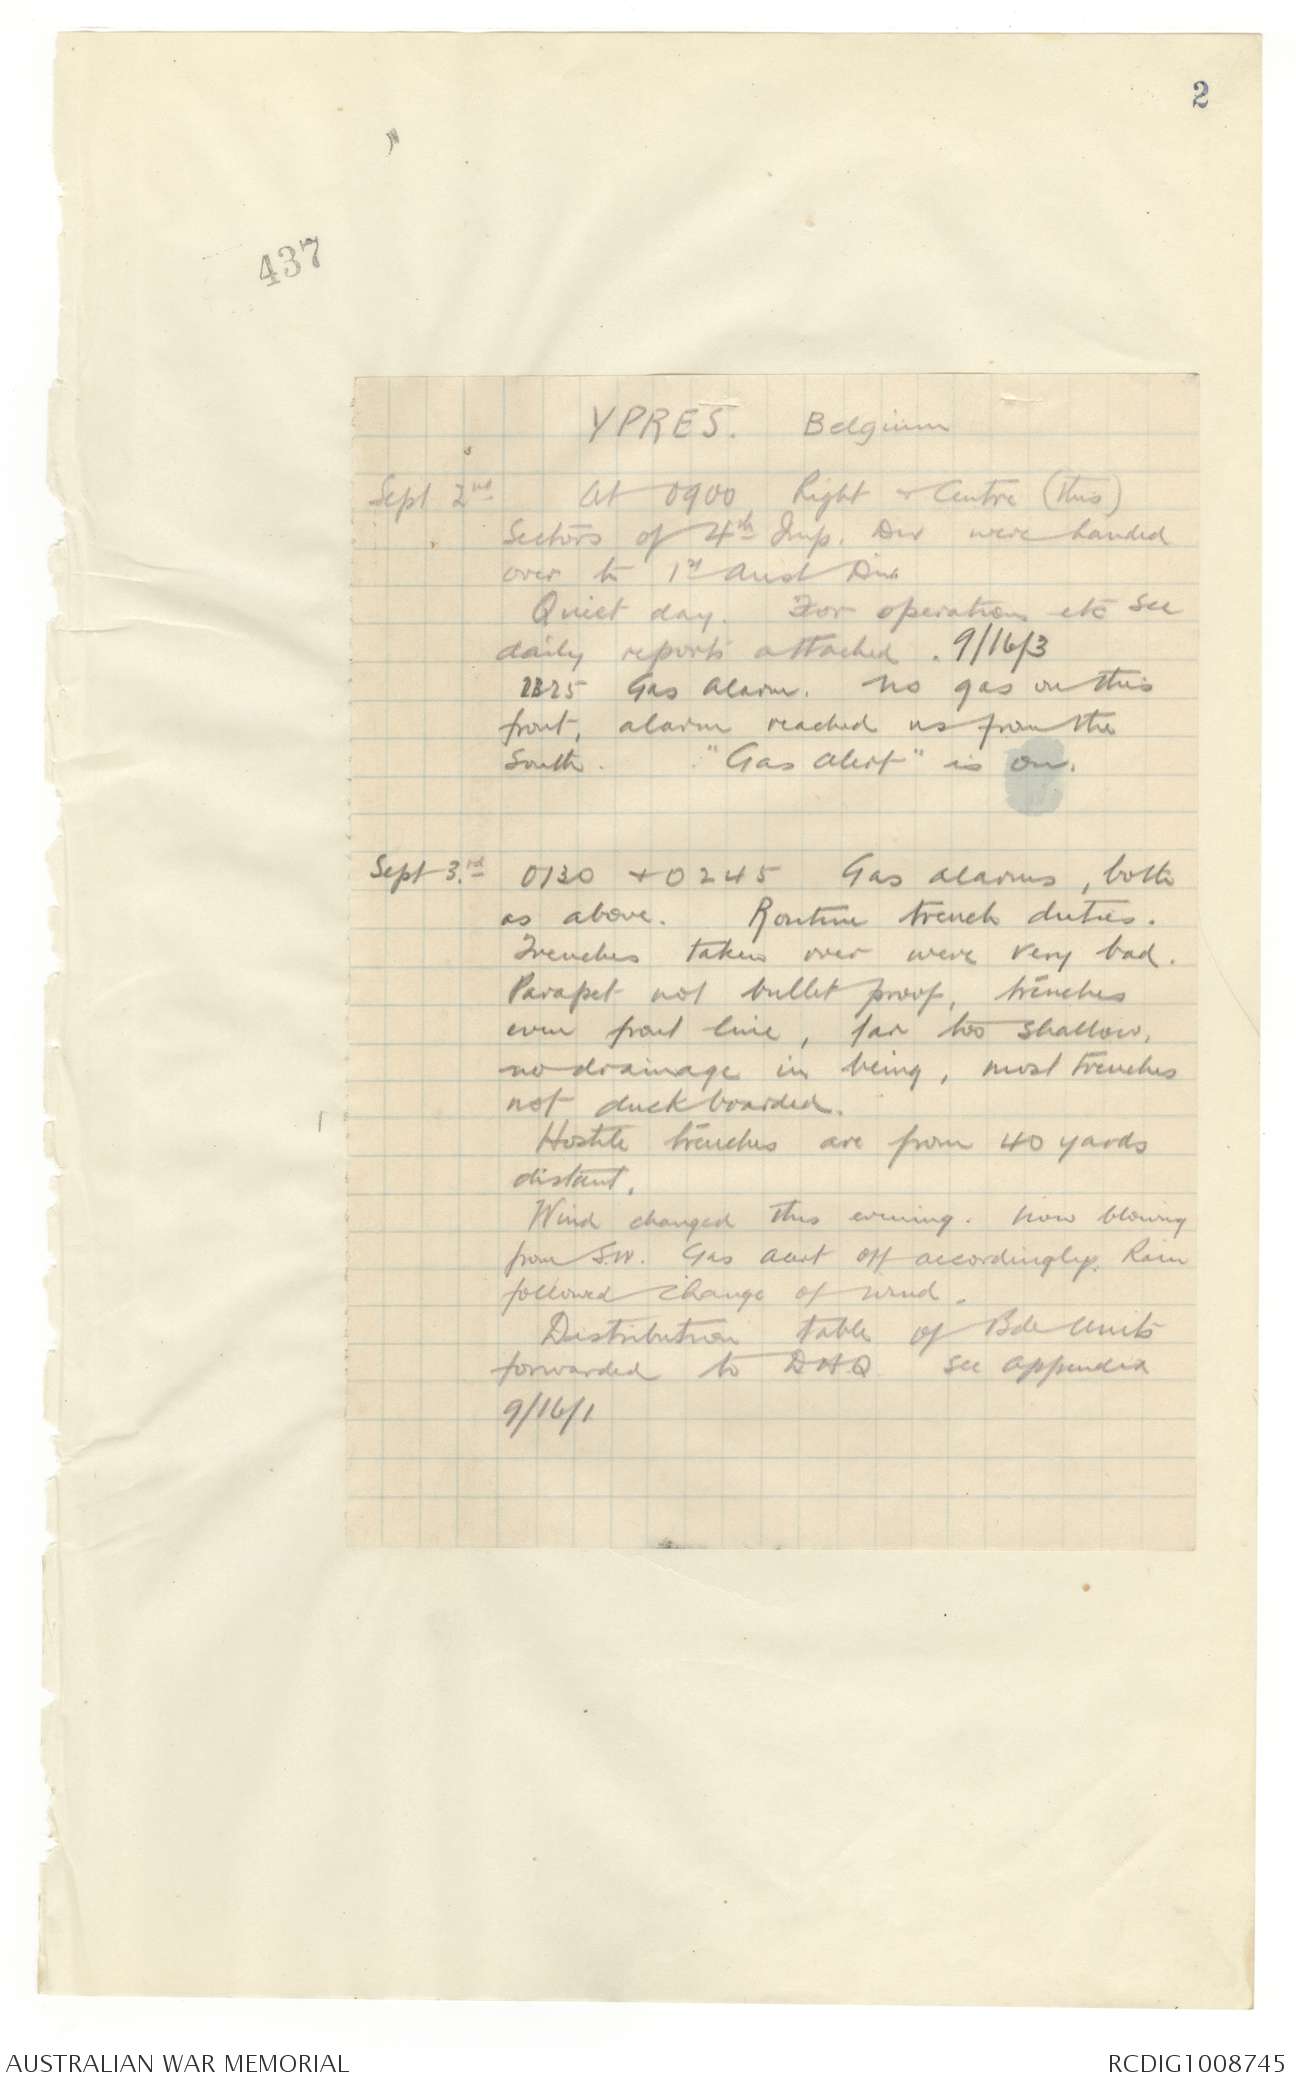 2
437
YPRES. Belgium
Sept 2nd At 0900 Right & Centre (this)
Sectors of 4th Imp. Div were handed
over to 1st Aust Div
Quiet day. For operations etc see
daily reports attached. 9/16/3
Gas Alarm. No gas on this
front, alarm reached us from the
South. "Gas Alert" is on.
Sept 3.rd 0130 + 0245 Gas alarms, both
as above. Routine trench duties.
Trenches taken over were very bad.
Parapet not bullet proof, trenches
even front line, far too shallow,
no drainage in being, most trenches
not duckboarded.
Hostile trenches are from 40 yards
distant.
Wind changed this evening. Now blowing
from S.W. Gas alert off accordingly. Rain
followed change of wind.
Distribution table of Bde Units
forwarded to DHQ see appendix
9/16/1
AUSTRALIAN WAR MEMORIAL
RCDIG1008745